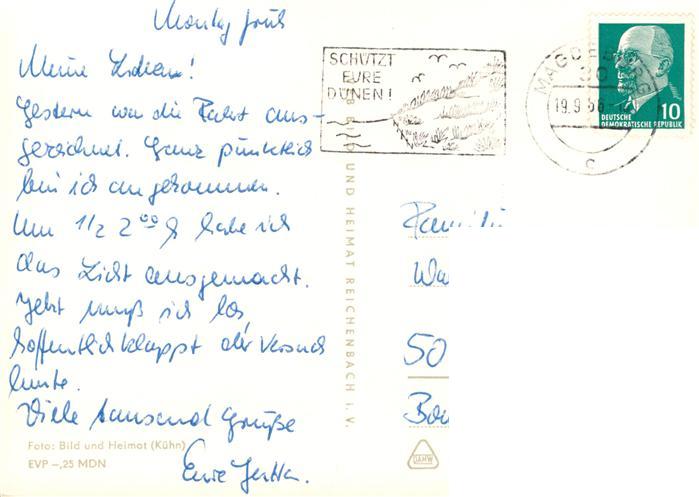 Montag früh
Meine Lieben!
Gestern war die Fahrt aus-
gezeichnet. Ganz pünktlich
bin ich angekommen.
Um 1/2 2 00 h habe ich
das Licht ausgemacht.
Jetzt muß ich los
hoffentlich klappt der Versuch
heute.
Viele tausend Grüße
Eure
Foto: Bild und Heimat (Kühn)
EVP –,25 MDN
UND HEIMAT REICHENBACH i. V.
SCHÜTZT
EURE
DÜNEN!
MAGDEB
30
19.9.66
c
DEUTSCHE
DEMOKRATISCHE REPUBLIK
10
Famili
Wa
50